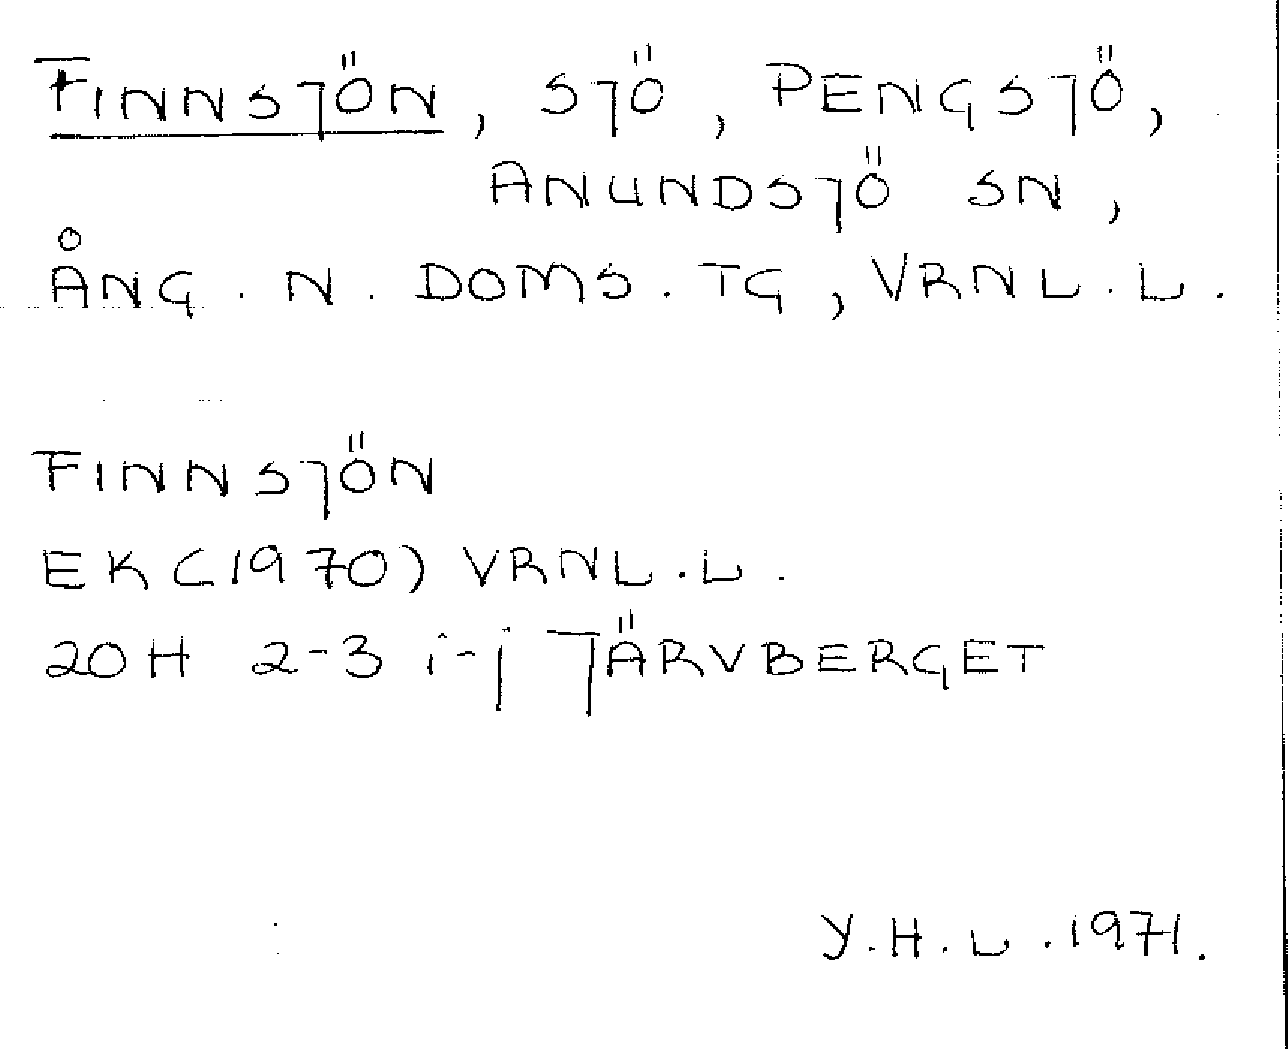 FINNSJÖN, SJÖ, PENGSJÖ,
ANUNDSJÖ SN,
ÅNG. N. DOMS. TG, VRNL.L.
FINNSJÖN
EK (1970) VRNL.L.
20H 2-3 i-j JÄRVBERGET
Y.H.L. 1971.